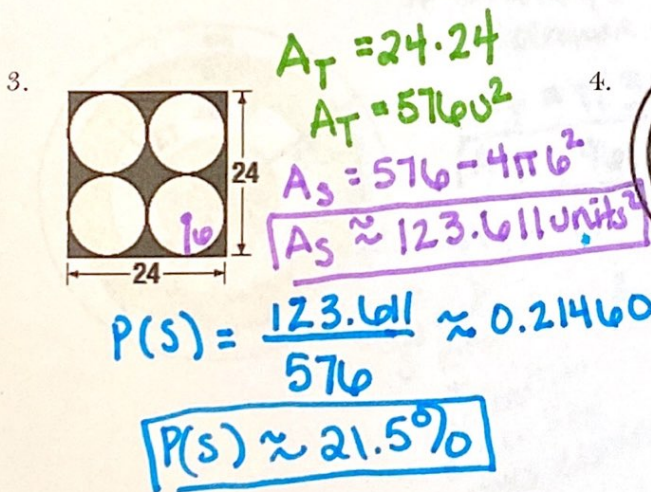 3.
A_T = 24·24
A_T = 576u²
4.
24
A_S = 576 - 4π6²
6
A_S ≈ 123.611 units²
24
P(S) = 123.611 / 576 ≈ 0.21460
P(S) ≈ 21.5%